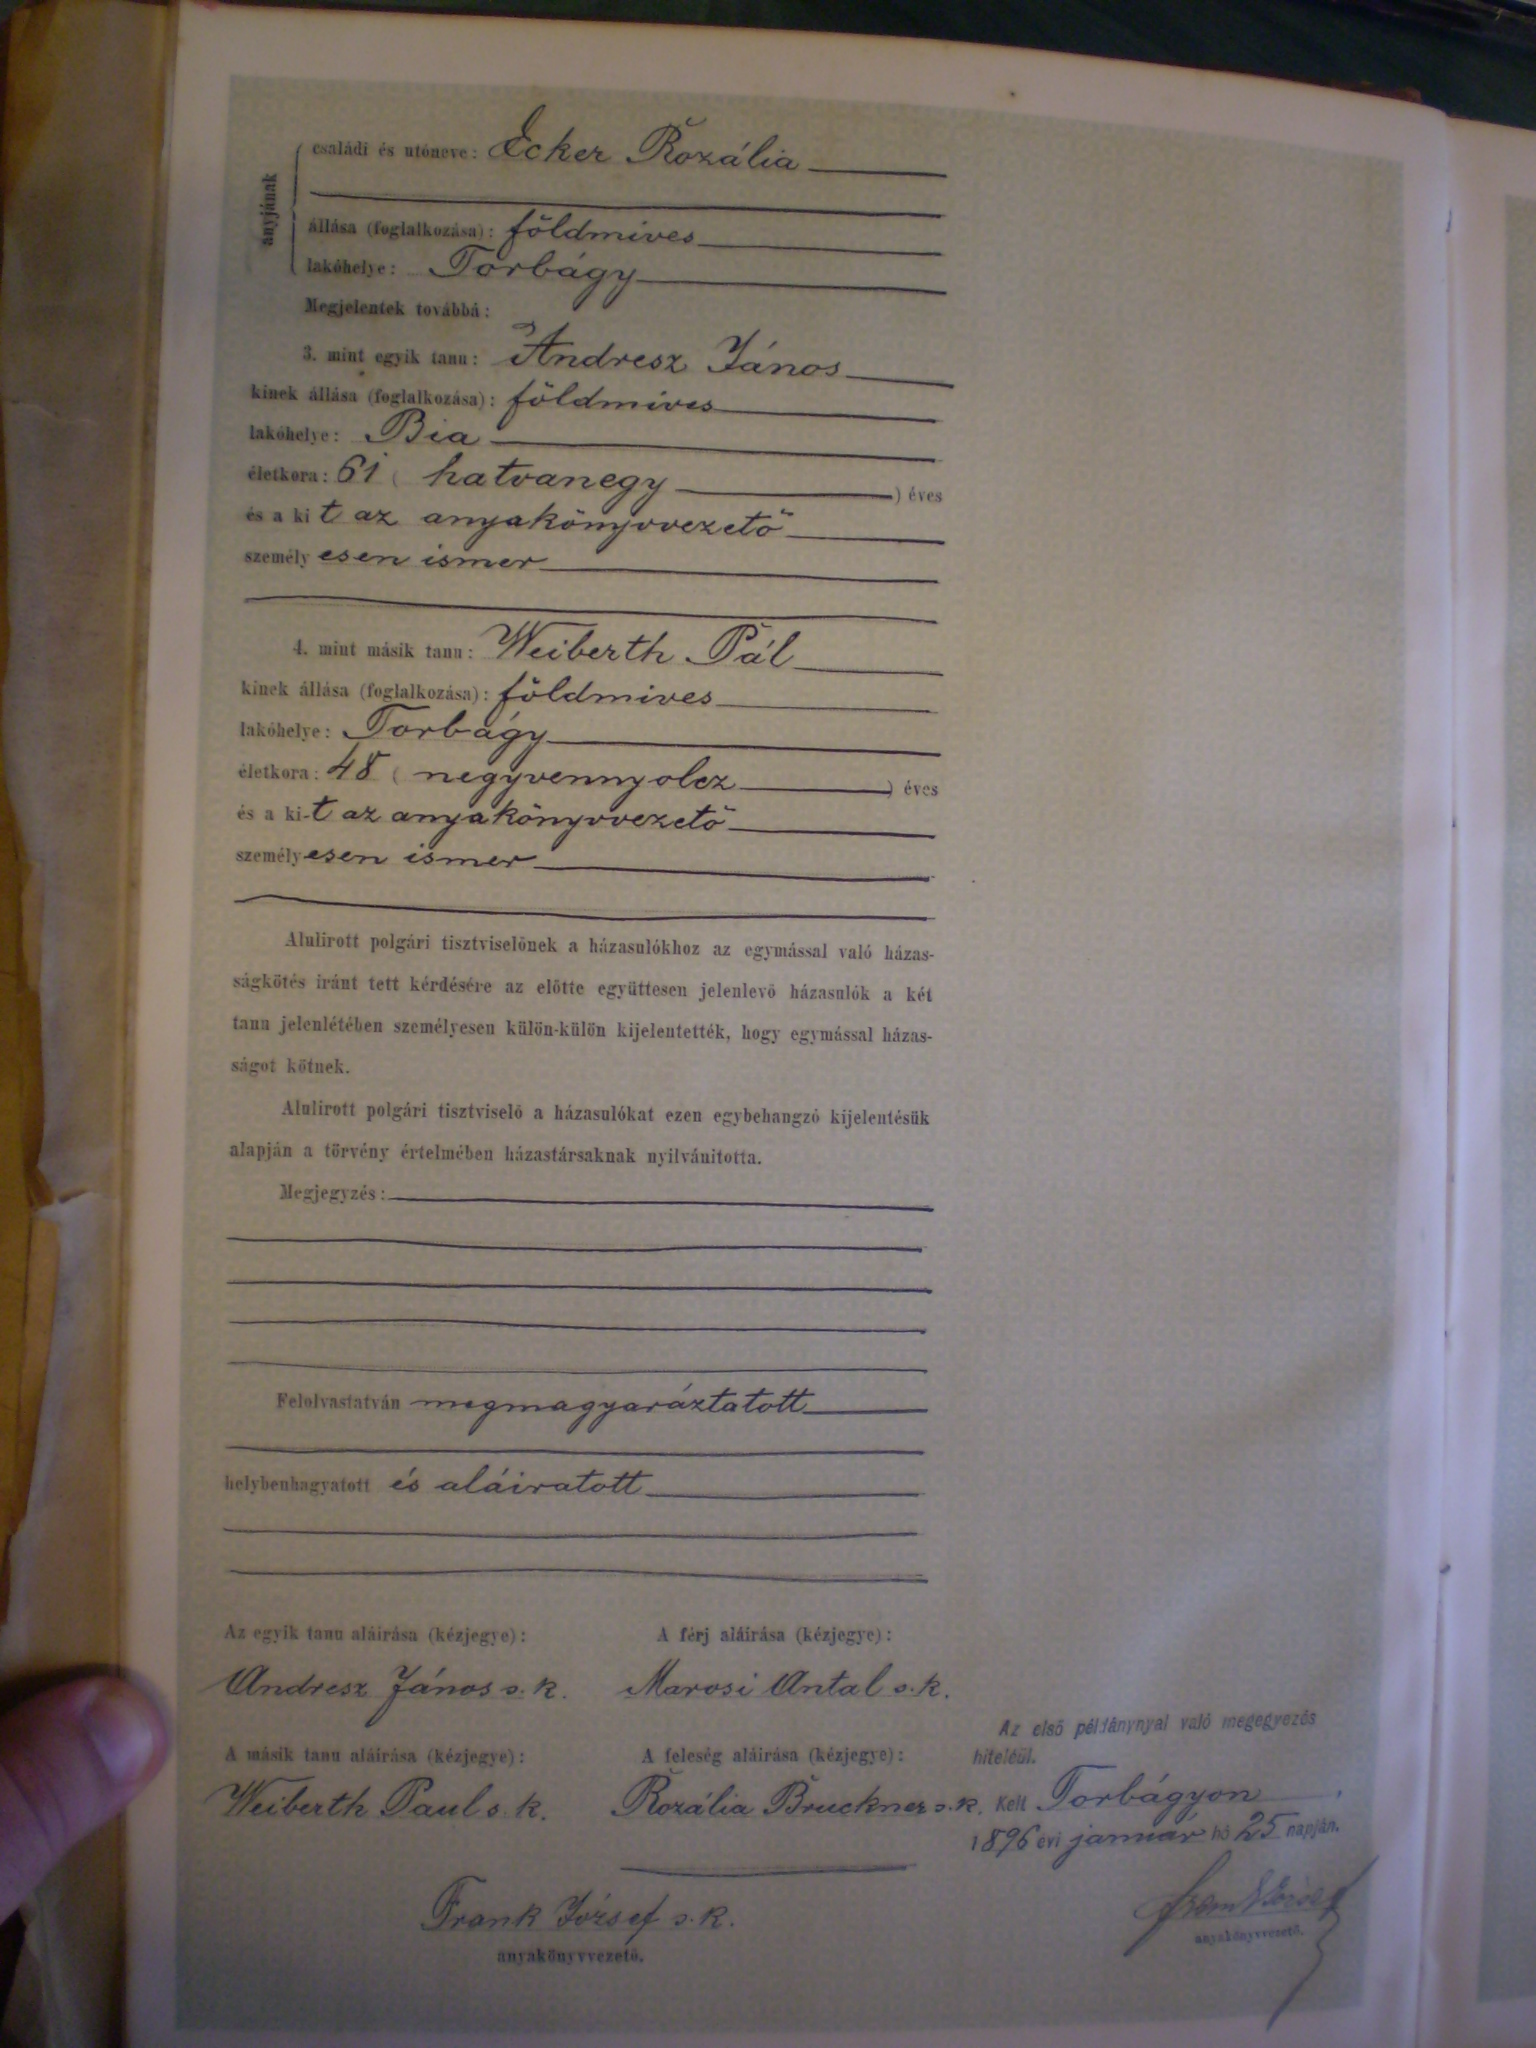 anyjának
családi és utóneve: Ecker Rozália
állása (foglalkozása): földmives
lakóhelye: Torbágy
Megjelentek továbbá:
3. mint egyik tanu: Andresz János
kinek állása (foglalkozása): földmives
lakóhelye: Bia
életkora: 61 ( hatvanegy ) éves
és a ki t az anyakönyvvezető
személy esen ismer
4. mint másik tanu: Weiberth Pál
kinek állása (foglalkozása): földmives
lakóhelye: Torbágy
életkora: 48 ( negyvennyolcz ) éves
és a ki-t az anyakönyvvezető
személy esen ismer
Alulirott polgári tisztviselőnek a házasulókhoz az egymással való házas-
ságkötés iránt tett kérdésére az előtte együttesen jelenlevő házasulók a két
tanu jelenlétében személyesen külön-külön kijelentették, hogy egymással házas-
ságot kötnek.
Alulirott polgári tisztviselő a házasulókat ezen egybehangzó kijelentésük
alapján a törvény értelmében házastársaknak nyilvánitotta.
Megjegyzés:
Felolvastatván megmagyaráztatott
helybenhagyatott és aláiratott
Az egyik tanu aláirása (kézjegye): A férj aláirása (kézjegye):
Andresz János s. k. Marosi Antal s. k.
A másik tanu aláirása (kézjegye): A feleség aláirása (kézjegye):
Weiberth Paul s. k. Rozália Bruckner s. k.
Frank József s. k.
anyakönyvvezető.
Az első példánynyal való megegyezés
hiteléül.
Kelt Torbágyon
1896 évi január hó 25 napján.
Frank József
anyakönyvvezető.